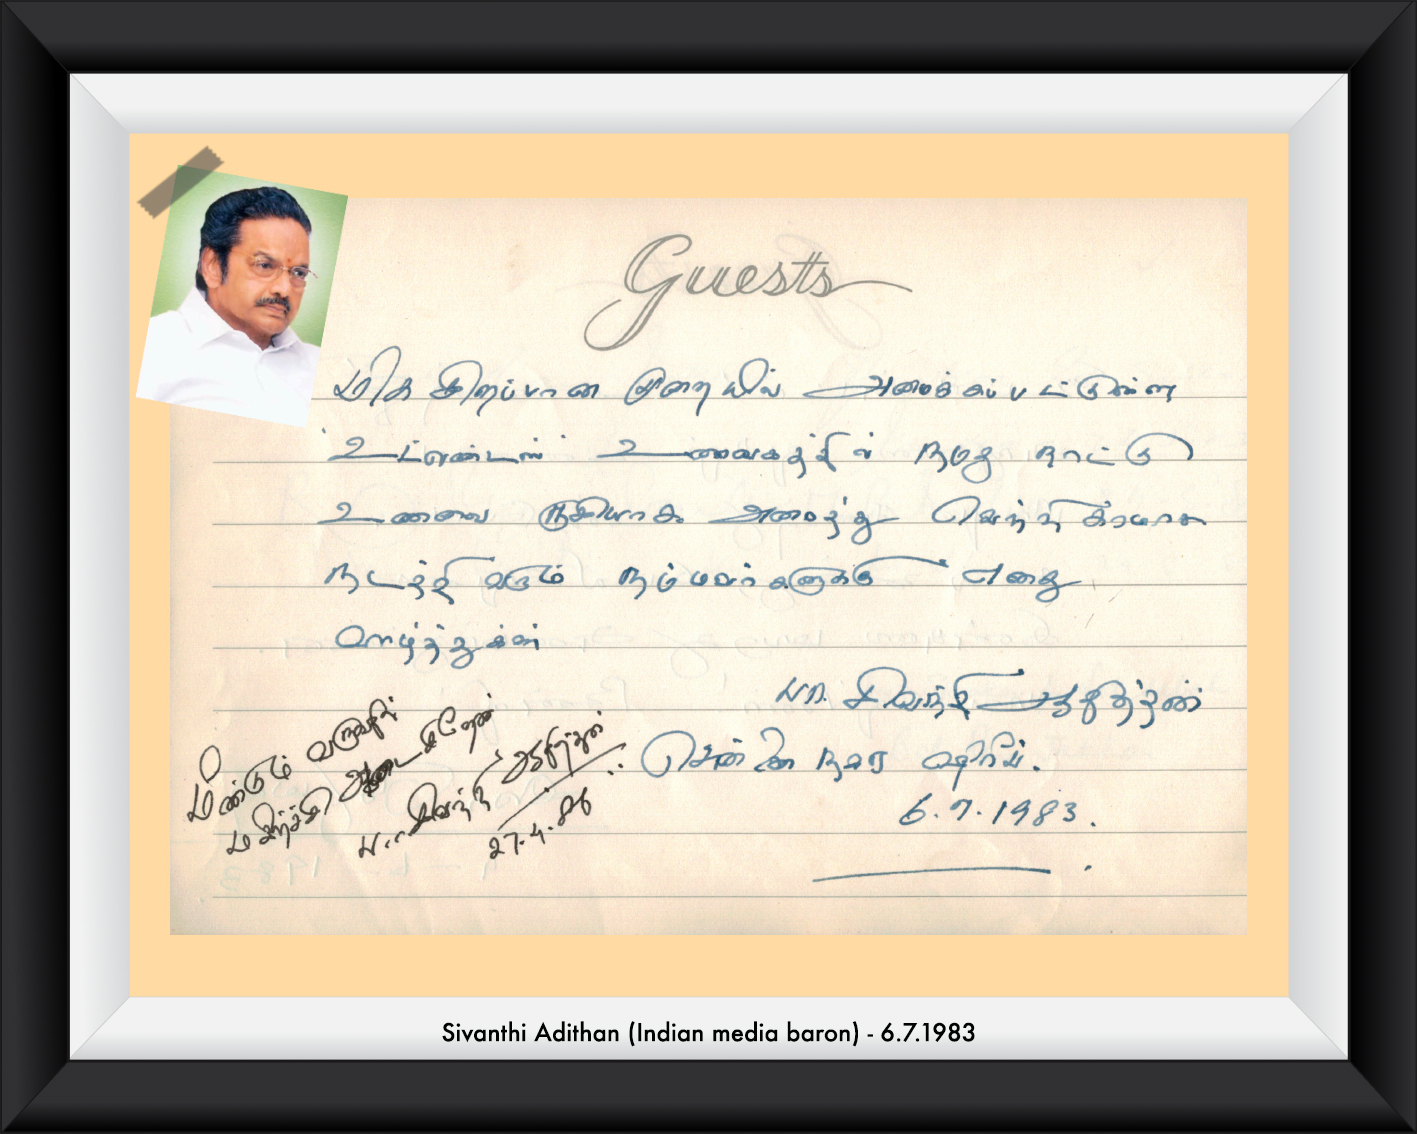 Guests
மிக சிறப்பான முறையில் அமைக்கப்பட்டுள்ள
உட்லண்டஸ் உணவகத்தில் நமது நாட்டு
உணவை ருசியாக அமைத்து வெற்றிகரமாக
நடத்தி வரும் நம்மவர்களுக்கு எனது
வாழ்த்துக்கள்
பா. சிவந்தி ஆதித்தன்
சென்னை நகர ஷெரிப்.
6.7.1983.
மீண்டும் வருவதில்
மகிழ்ச்சி அடைகிறேன்
பா. சிவந்தி ஆதித்தன்
27.4.86
Sivanthi Adithan (Indian media baron) - 6.7.1983